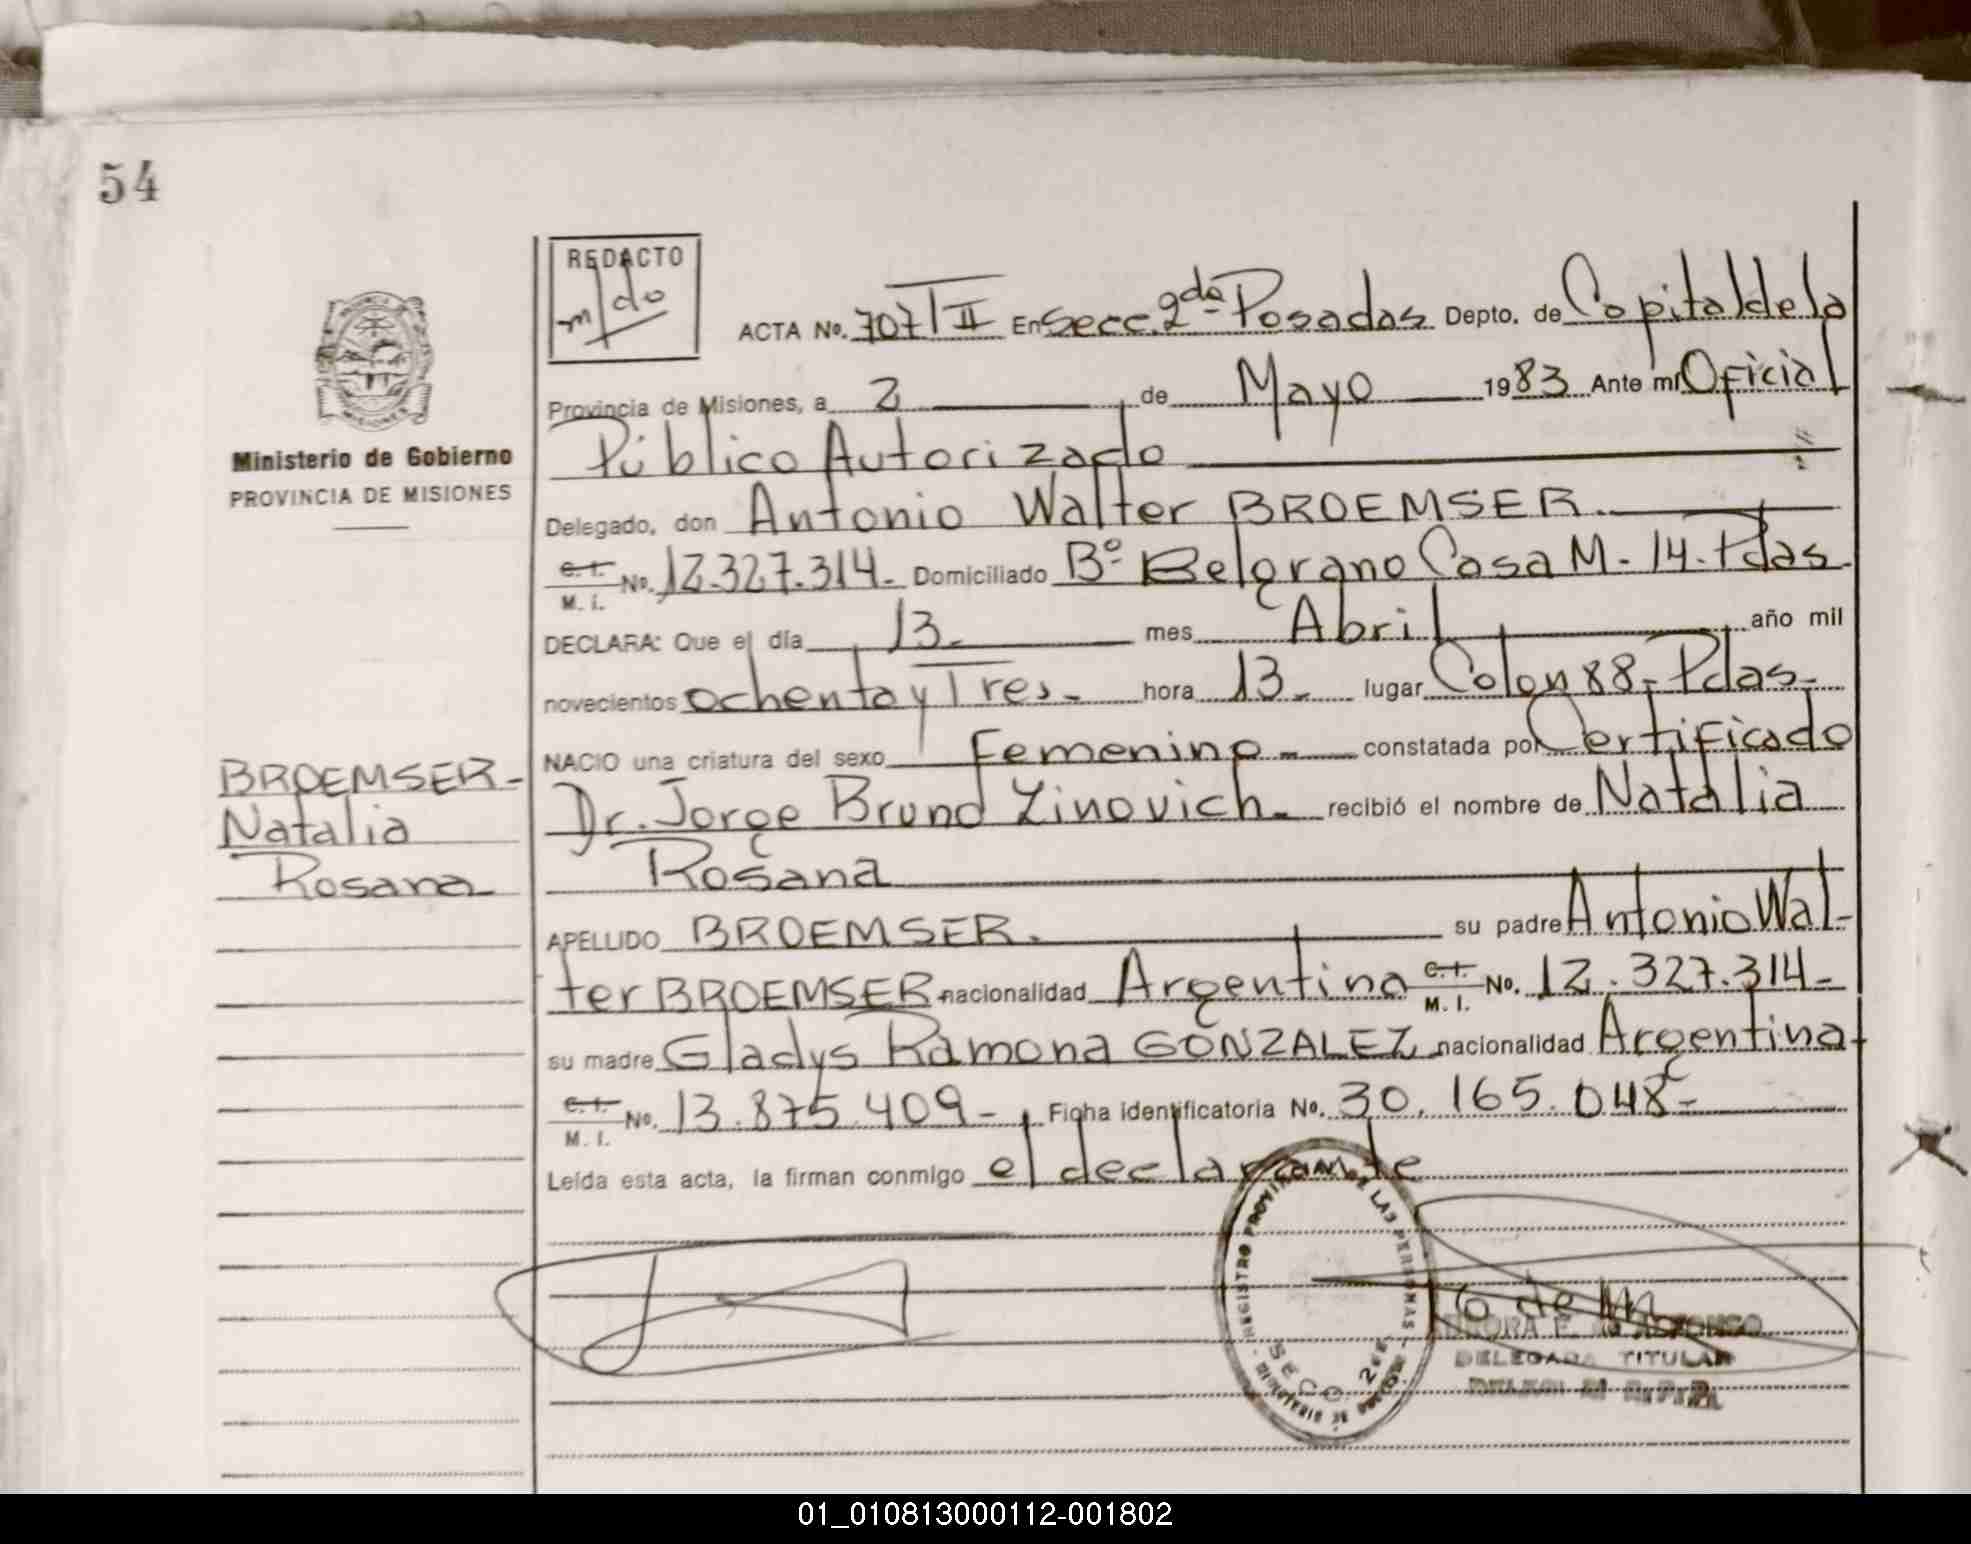 54
REDACTO
m/do
ACTA No. 707 T II En Secc. 2da Posadas Depto. de Capital de la
Provincia de Misiones, a 2 de Mayo 1983 Ante mí Oficial
Público Autorizado
Ministerio de Gobierno
PROVINCIA DE MISIONES
Delegado, don Antonio Walter BROEMSER.
C. I. M. I. No. 12.327.314. Domiciliado Bº Belgrano Casa M-14. Pdas.
DECLARA: Que el día 13. mes Abril año mil
novecientos ochenta y Tres. hora 13. lugar Colon 88. Pdas.
NACIO una criatura del sexo Femenino constatada por Certificado
Dr. Jorge Bruno Zinovich. recibió el nombre de Natalia
Rosana
BROEMSER-
Natalia
Rosana
APELLIDO BROEMSER. su padre Antonio Wal-
ter BROEMSER nacionalidad Argentina C. I. M. I. No. 12.327.314-
su madre Gladys Ramona GONZALEZ nacionalidad Argentina
C. I. M. I. No. 13.875.409- Ficha identificatoria No. 30.165.048-
Leída esta acta, la firman conmigo el declarante
REGISTRO PROVINCIAL DE LAS PERSONAS
SECC 2da
ALFONSO
DELEGADA TITULAR
01_010813000112-001802